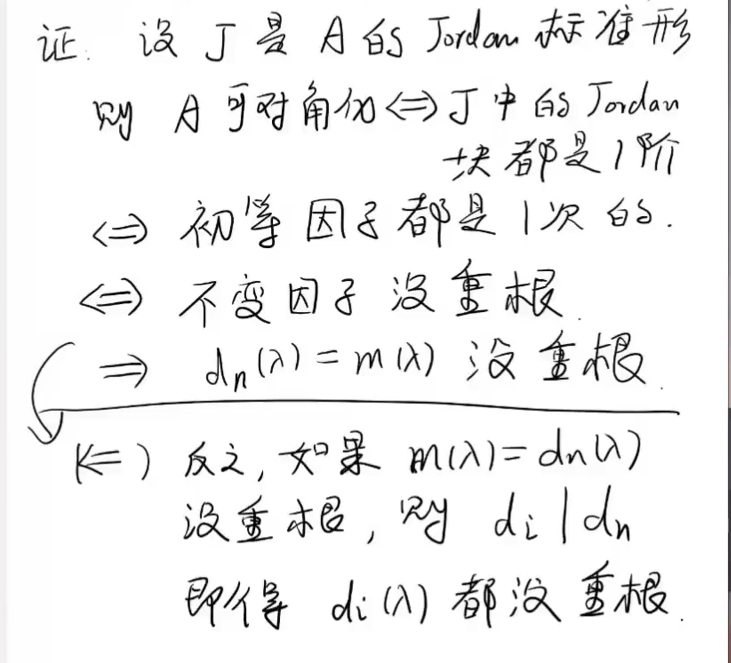 证. 设 J 是 A 的 Jordan 标准形
则 A 可对角化 <=> J 中的 Jordan
块都是 1 阶
<=> 初等因子都是 1 次的.
<=> 不变因子没重根.
=> dn(λ) = m(λ) 没重根.
(<=) 反之, 如果 m(λ) = dn(λ)
没重根, 则 di | dn
即得 di(λ) 都没重根.